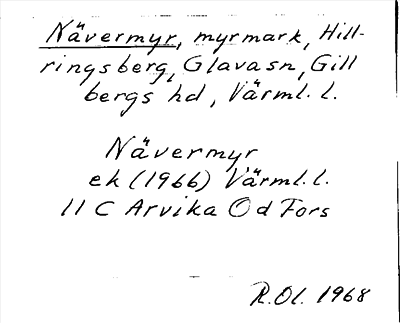 Nävermyr, myrmark, Hill-
ringsberg, Glava sn, Gill
bergs hd, Värml. l.
Nävermyr
ek (1966) Värml. l.
11 C Arvika Od Fors
R.Ol. 1968